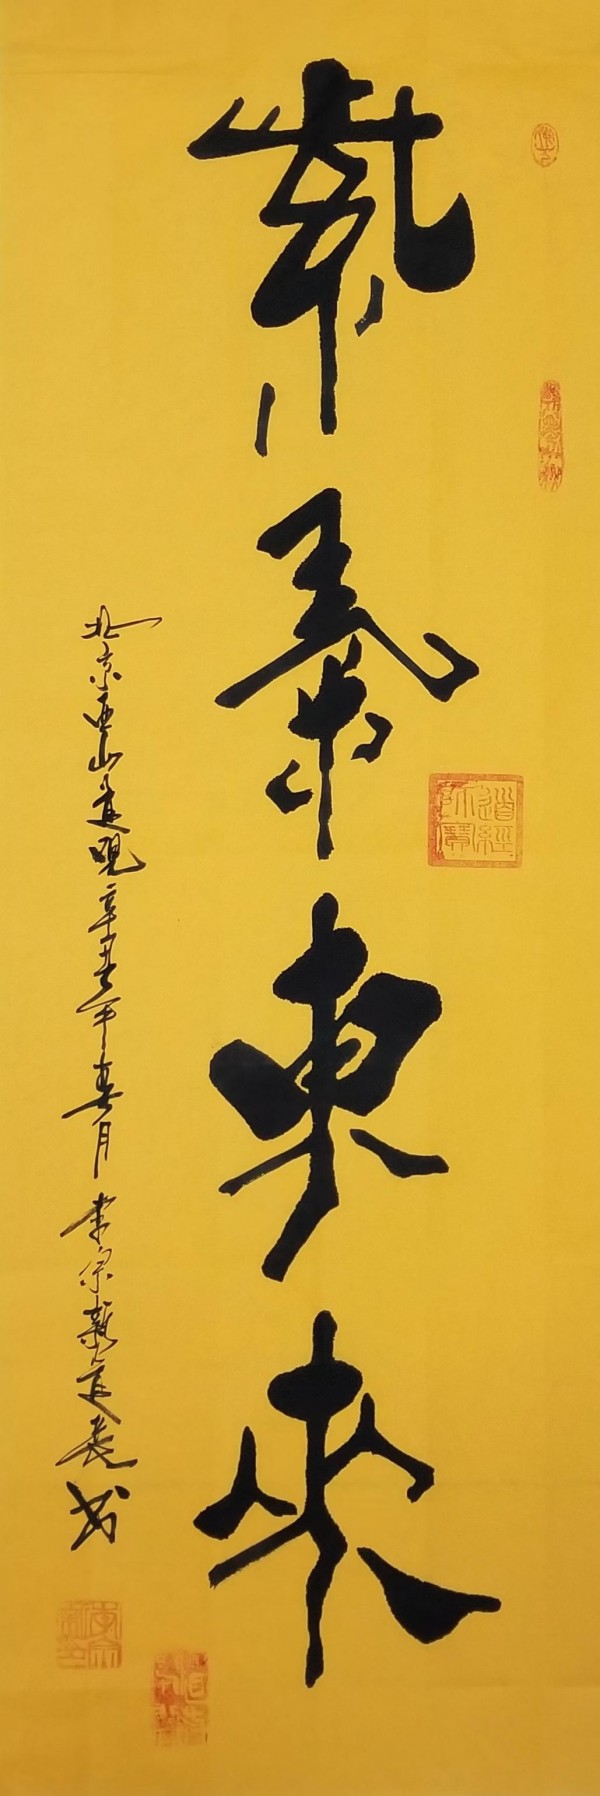 紫氣東來
北京西山道观辛丑年春月李宗新道長书
道經師寶